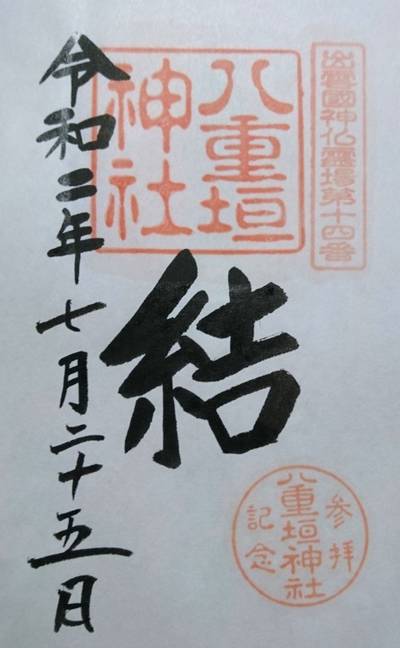 出雲國神仏霊場第十四番
八重垣
神社
結
参拝
八重垣神社
記念
令和二年七月二十五日